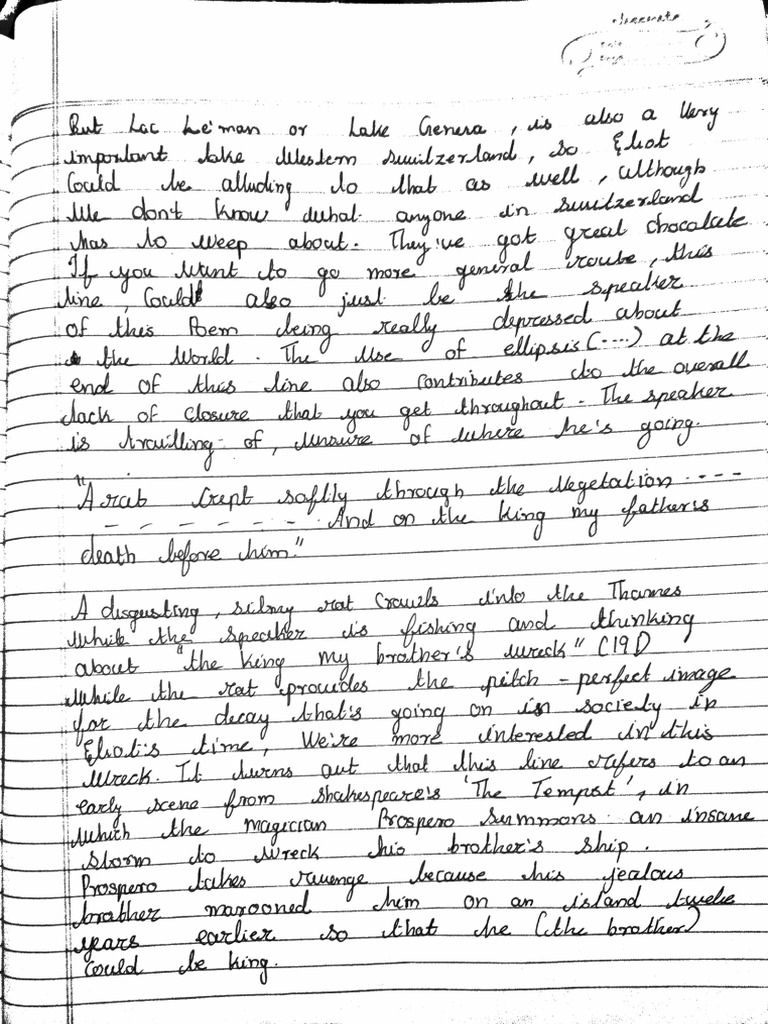 classmate
Date
Page
But Lac Le'man or Lake Geneva, is also a very
important lake Western Switzerland, so Eliot
Could be alluding to that as well, although
We don't know what anyone in Switzerland
has to weep about. They've got great chocolate
If you want to go more general route, this
line, Could also just be the speaker
of this Poem being really depressed about
the World. The Use of ellipsis (....) at the
end of this line also Contributes to the overall
lack of closure that you get throughout - The speaker
is travilling of, unsure of where he's going.
"A rat Crept softly through the Vegetation ----
- - - - - - - And on the King my father's
death before him."
A disgusting, silmy rat Crawls into the Thames
While the speaker is fishing and thinking
about "the King my brother's wreck" (191)
While the rat provides the pitch - perfect image
for the decay that's going on in society in
Eliot's time, We're more interested in this
Wreck. It turns out that this line refers to an
early scene from Shakespeare's 'The Tempst', in
Which the magician Prospero Summons an insane
Storm to wreck his brother's ship.
Prospero takes revenge because his jealous
brother marooned him on an island twele
years earlier so that he (the brother)
Could be King.